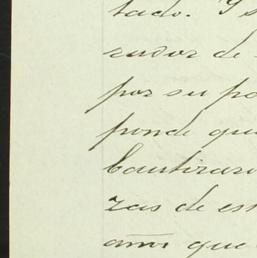 tado. Y s
rador de
por su po
ponde que
bautizaro
zas de est
que